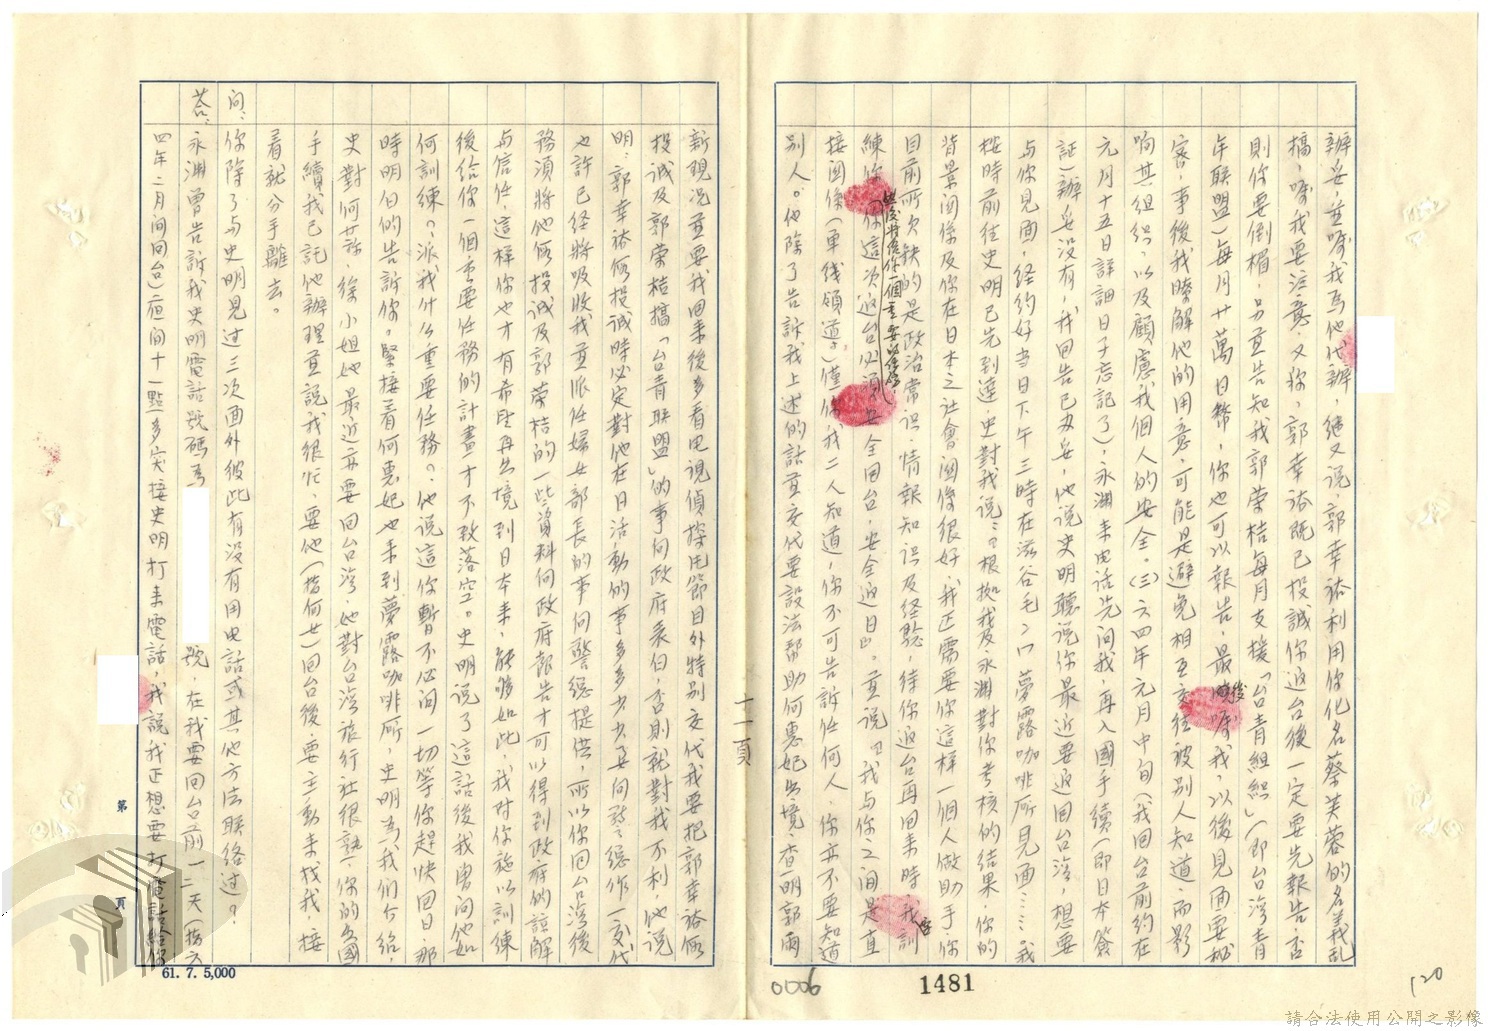 辦妥，並囑我為他代辦，繼又说，郭幸裕利用你化名蔡芙蓉的名義亂
搞，囑我要注意，又称，郭幸裕既已投誠你返台後一定要先報告，否
則你要倒楣，另並告知我郭荣桔每月支援「台青組織」（即台湾青
年联盟）每月廿萬日幣，你也可以報告，最後囑我，以後見面要秘
密，事後我瞭解他的用意，可能是避免相互交往被别人知道，而影
响其組织，以及顧慮我個人的安全。（三）六四年元月中旬（我回台前約在
元月十五日詳細日子忘記了），永渊来电话先问我，再入國手續（即日本簽
証）辦妥没有，我回告已办妥，他说史明聽说你最近要返回台湾，想要
与你見面，经約好当日下午三時在澁谷毛人口夢露咖啡所見面……我
按時前往史明已先到達，史對我说：『根拠我及永渊對你考核的结果，你的
背景関係及你在日本之社會関係很好，我正需要你這样一個人做助手，你
目前所欠缺的是政治常识，情報知识及经驗，待你返台再回来時我
訓練你
然後将給你一個重要的任務，
你這次返台必須安全回台，安全返日』。並说『我与你之间是直
接関係（單线領道），僅你我二人知道，你不可告訴任何人，你亦不要知道
别人。他除了告訴我上述的話並交代要設法帮助何惠妃出境，查明郭雨
新現况並要我回来後多看电視偵探片節目外特别交代我要把郭幸裕伪
投诚及郭荣桔搞「台青联盟」的事向政府表白，否則就對我不利，他说
明：郭幸裕伪投诚時必定對他在日活動的事多多少少要向警總作一交代
也许已经將吸收我並派任婦女部長的事向警總提供，所以你回台湾後
務須将他伪投诚及郭荣桔的一些資料向政府報告才可以得到政府的諒解
与信任，這样你也才有希望再出境到日本来，能够如此，我对你施以訓練
後給你一個重要任務的計畫才不致落空。史明说了這話後我曾问他如
何訓練？派我什么重要任務？他说這你暫不必问一切等你趕快回日那
時明白的告訴你。緊接着何惠妃也来到夢露咖啡所，史明為我们介紹，
史對何女説，徐小姐她最近亦要回台湾，她對台湾旅行社很熟，你的出國
手續我已託他辦理並説我很忙，要他（指何女）回台後，要主動来找我，接
着就分手離去。
问：你除了与史明見过三次面外彼此有没有用电話或其他方法联络过？
答：永渊曾告訴我史明電話號碼為　　　號，在我要回台前一二天（指六
四年二月间回台）夜间十一點多突接史明打来電話，我說我正想要打電話給你
十一頁
第　頁
61. 7. 5,000
0006
1481
120
請合法使用公開之影像